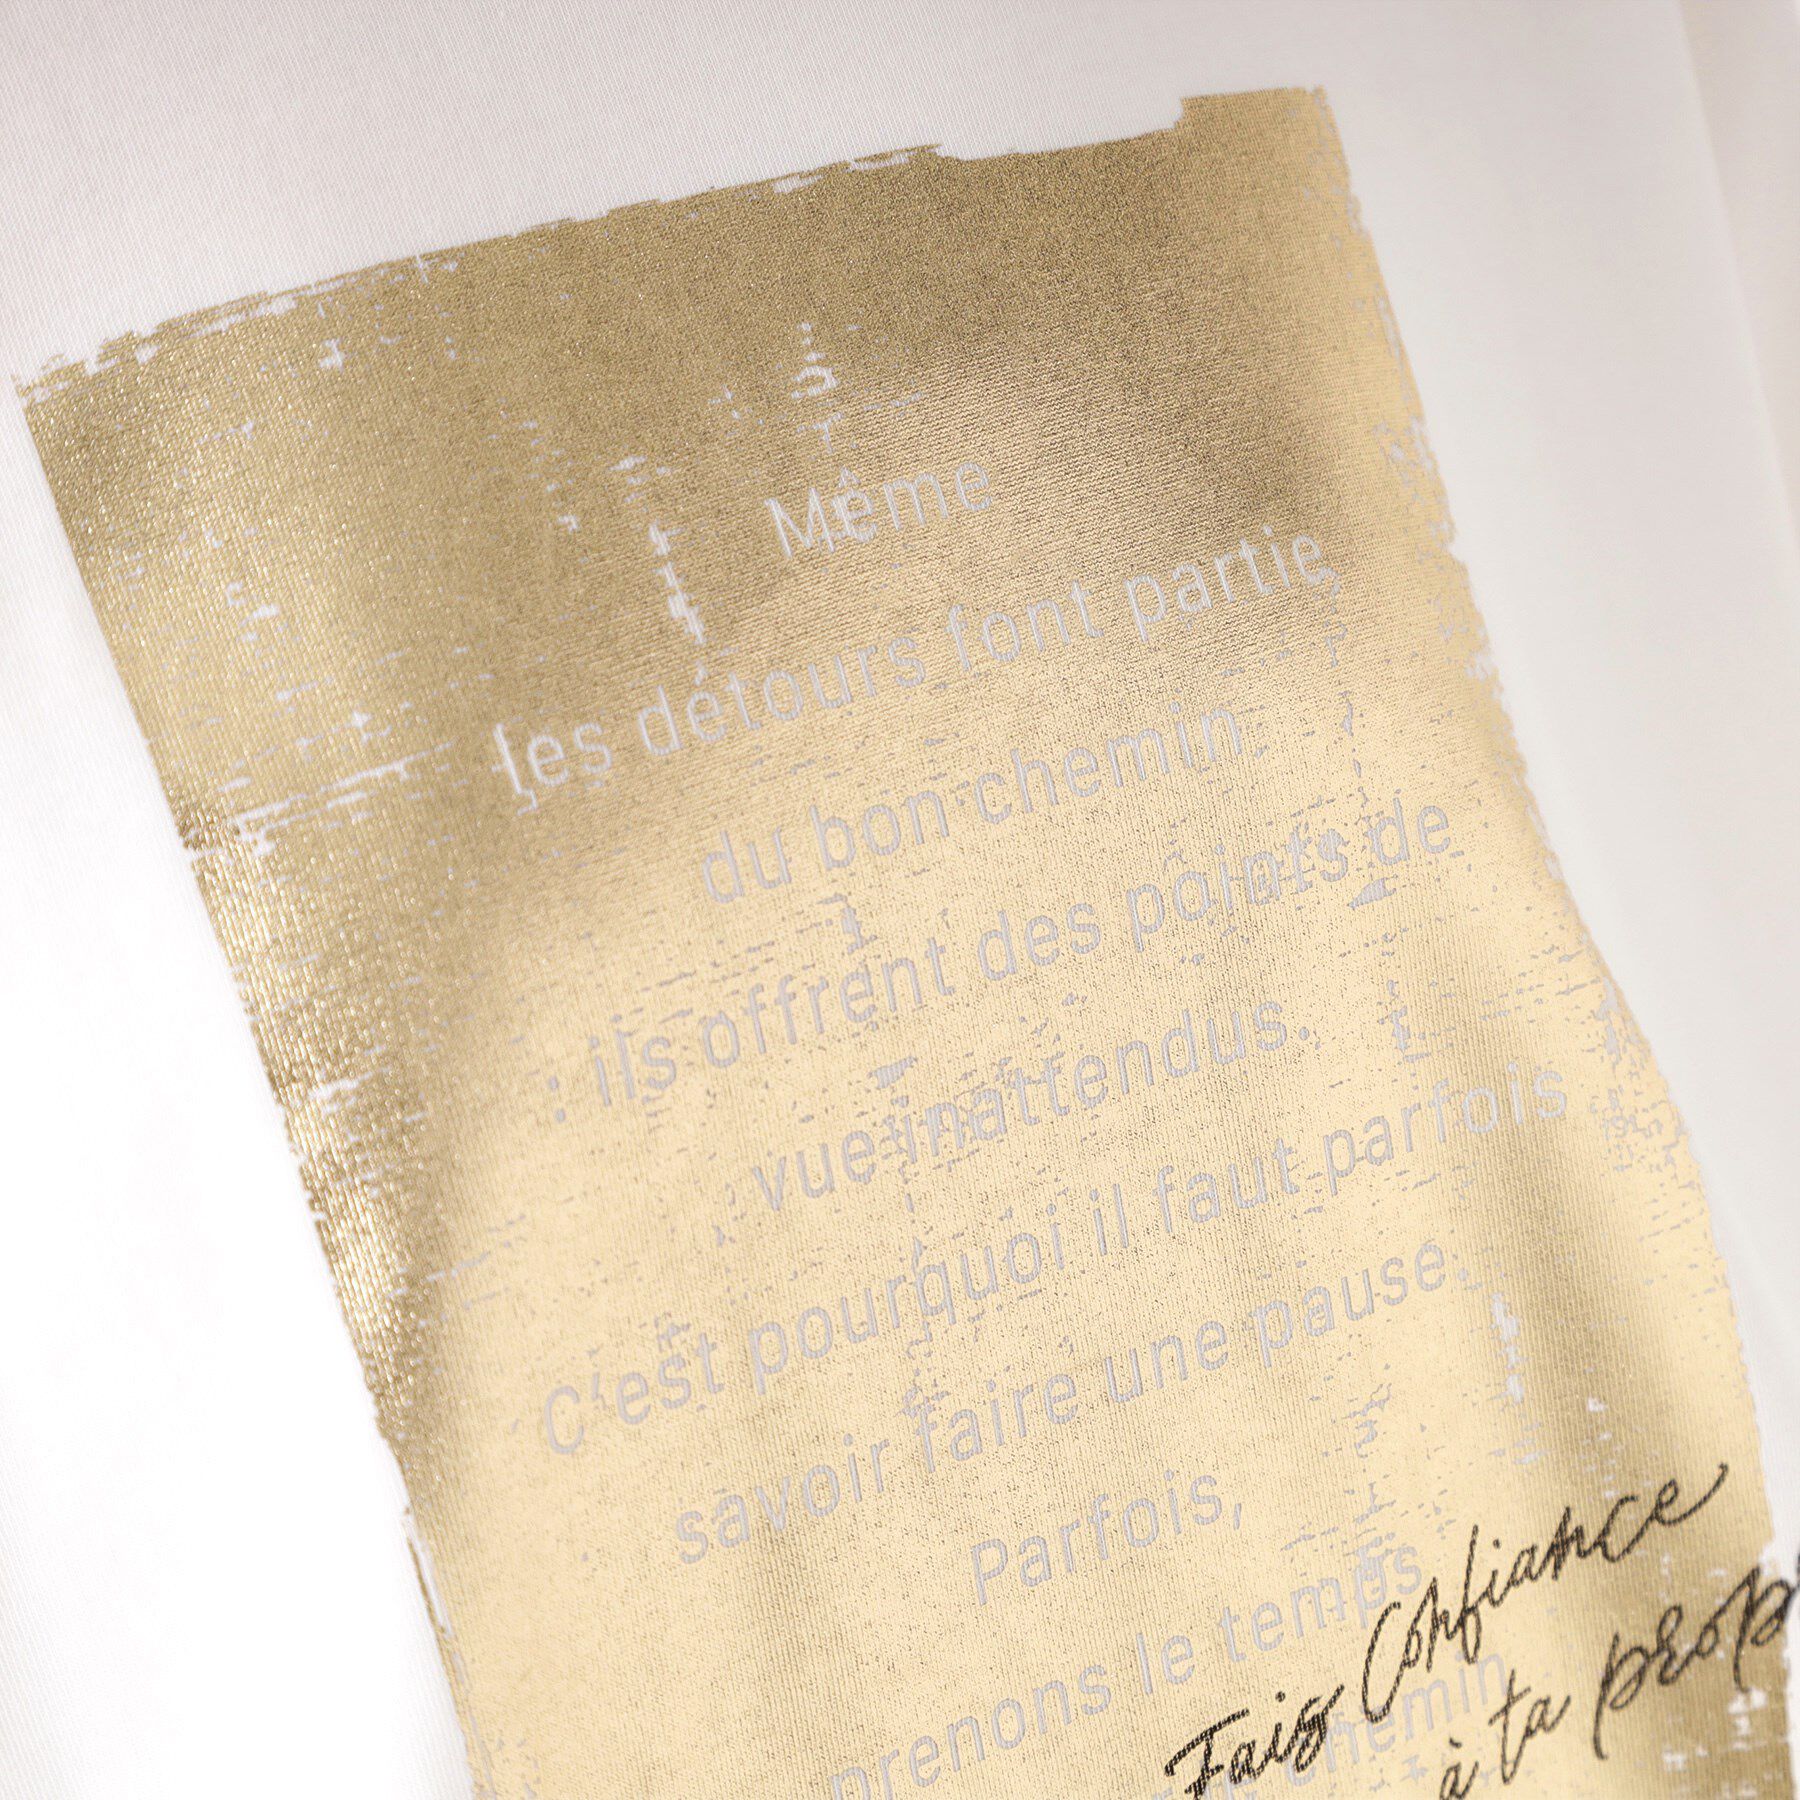 Même
les détours font partie
du bon chemin
: ils offrent des points de
vue inattendus.
C'est pourquoi il faut parfois
savoir faire une pause.
Parfois,
prenons le temps
chemin
Fais Confiance
à ta